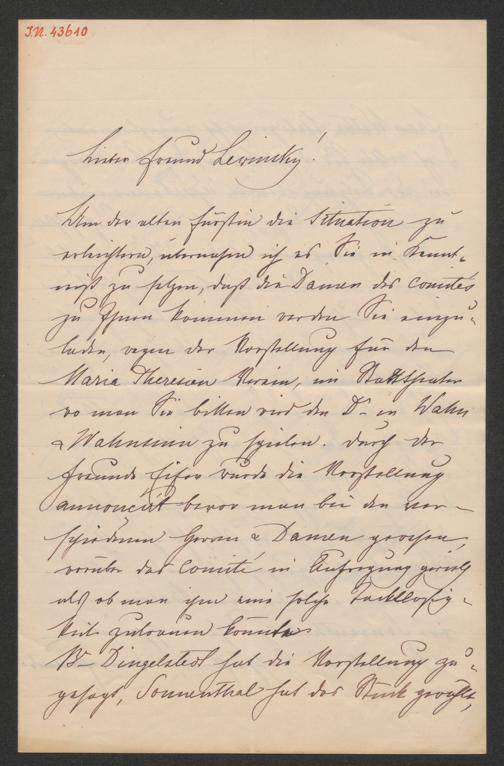 I.N. 43610
Lieber Freund Lewinsky!
Um der alten Fürstin die Situation zu
erleichtern, übernehme ich es Sie in Kennt-
niß zu setzen, daß die Damen des Comités
zu Ihnen kommen werden Sie einzu-
laden, wegen der Vorstellung für den
Maria Theresien Verein, im Stadttheater
wo man Sie bitten wird den Dr in Wahn
& Wahnsinn zu spielen. Durch der
Freunde Eifer wurde die Vorstellung
annoncirt bevor man bei den ver-
schiedenen Herren & Damen gewesen,
worüber das Comité in Aufregung gerieth
als ob man ihm eine solche Taktlosig-
keit zutrauen könnte
Br Dingelstedt hat die Vorstellung zu-
gesagt, Sonnenthal hat das Stück gewählt,